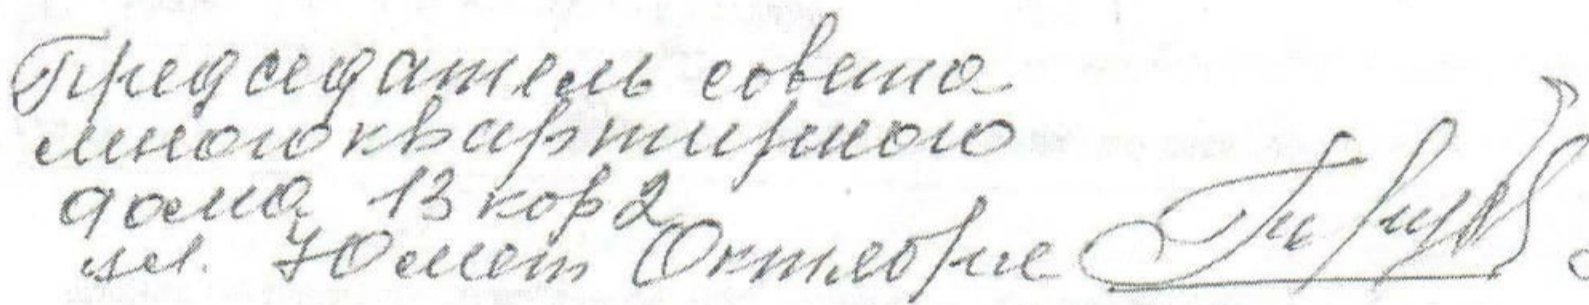 Председатель совета
многоквартирного
дома 13 кор 2
ул. 40 лет Октября